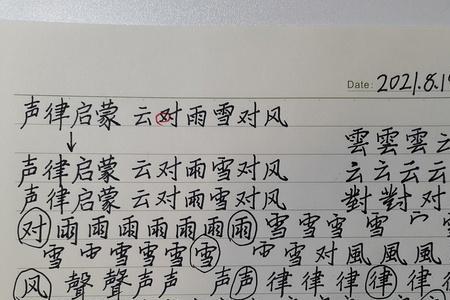 Date: 2021.8.19
声律启蒙 云对雨雪对风
雲雲雲云
声律启蒙 云对雨雪对风 云云云云
声律启蒙 云对雨雪对风 對對对
对雨雨雨雨雨雨雨雪雪雪雪
雪雪雪雪雪雪雪对風風風
风聲聲声声声声律律律律律